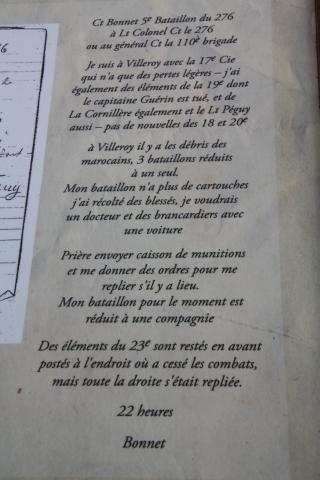 76
Ct Bonnet 5e Bataillon du 276
à Lt Colonel Ct le 276
ou au général Ct la 110è brigade
Je suis à Villeroy avec la 17e Cie
qui n'a que des pertes légères – j'ai
également des éléments de la 19e dont
le capitaine Guérin est tué, et de
La Cornillère également et le Lt Péguy
aussi – pas de nouvelles des 18 et 20e
à Villeroy il y a les débris des
marocains, 3 bataillons réduits
à un seul.
Mon bataillon n'a plus de cartouches
j'ai récolté des blessés, je voudrais
un docteur et des brancardiers avec
une voiture
Prière envoyer caisson de munitions
et me donner des ordres pour me
replier s'il y a lieu.
Mon bataillon pour le moment est
réduit à une compagnie
Des éléments du 23e sont restés en avant
postés à l'endroit où a cessé les combats,
mais toute la droite s'était repliée.
22 heures
Bonnet